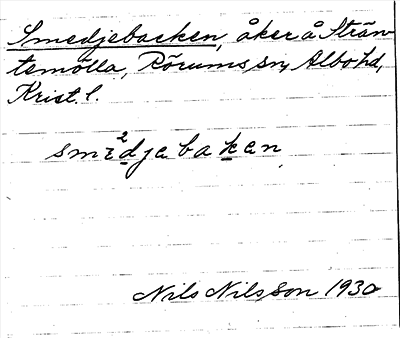 Smedjebacken, åker å Strän-
temölla, Rörums sn, Albo hd,
Krist. l.
smædjebaken
Nils Nilsson 1930